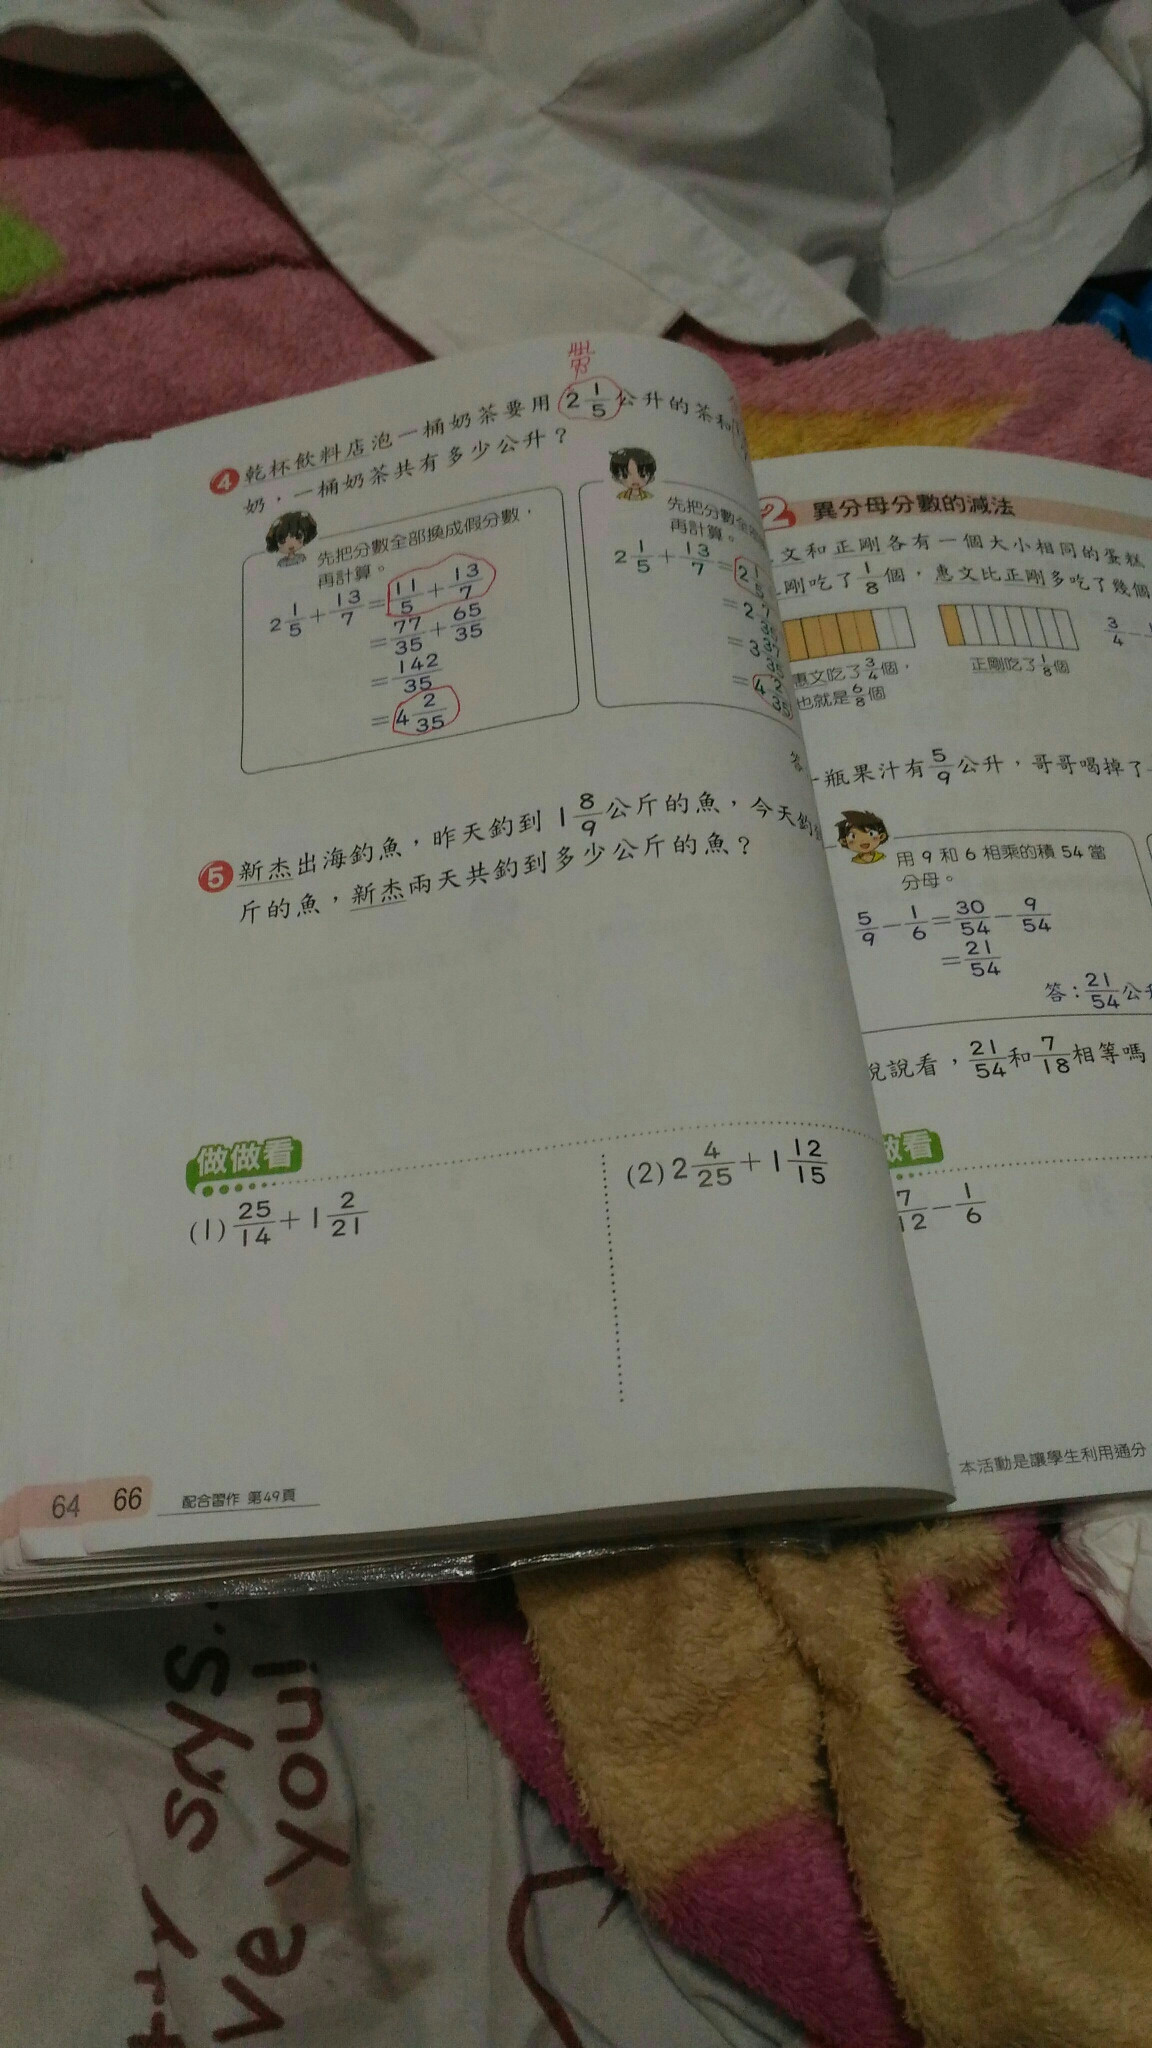 帶
4 乾杯飲料店泡一桶奶茶要用 2 1/5 公升的茶和
奶,一桶奶茶共有多少公升?
先把分數全部換成假分數,
再計算。
2 1/5 + 13/7 = 11/5 + 13/7
= 77/35 + 65/35
= 142/35
= 4 2/35
先把分數全
再計算。
2 1/5 + 13/7 = 2 1/5
= 2
= 3
= 4
答
5 新杰出海釣魚,昨天釣到 1 8/9 公斤的魚,今天釣
斤的魚,新杰兩天共釣到多少公斤的魚?
做做看
(1) 25/14 + 1 2/21
(2) 2 4/25 + 1 12/15
64 66 配合習作 第49頁
2 異分母分數的減法
文和正剛各有一個大小相同的蛋糕
剛吃了 1/8 個,惠文比正剛多吃了幾個
惠文吃了 3/4 個,
也就是 6/8 個
正剛吃了 1/8 個
3/4 −
一瓶果汁有 5/9 公升,哥哥喝掉了
用 9 和 6 相乘的積 54 當
分母。
5/9 − 1/6 = 30/54 − 9/54
= 21/54
答:21/54 公升
說說看,21/54 和 7/18 相等嗎
做看
7/12 − 1/6
本活動是讓學生利用通分
sys..
ve you!